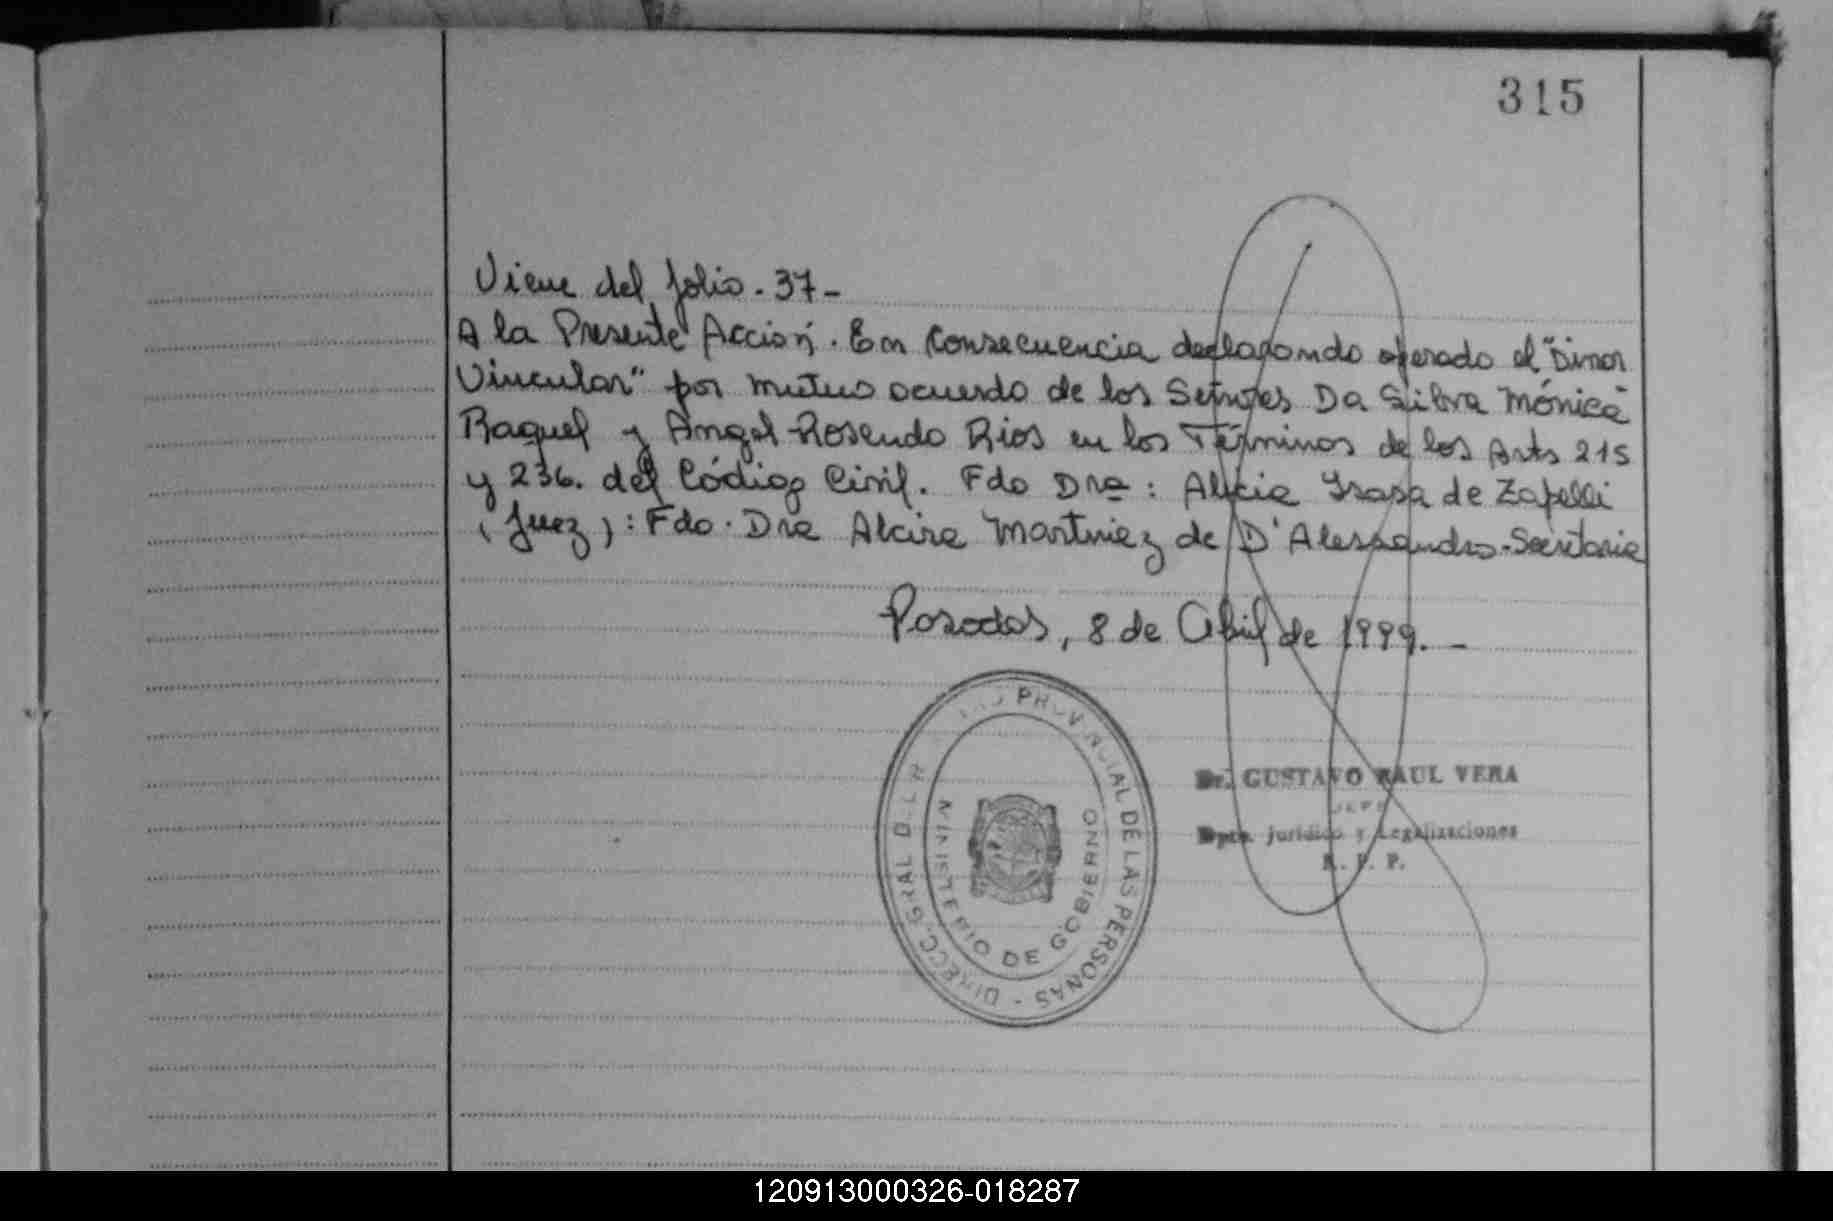 315
Viene del folio. 37-
A la Presente Acción. En Consecuencia declarando operado el "Divor
Vincular" por mutuo acuerdo de los Señores Da Silva Mónica
Raquel y Angel Rosendo Rios en los Términos de los Arts 215
y 236. del Código Civil. Fdo Dra: Alicia de Zapelli
(Juez): Fdo. Dra Alcira Martinez de D'Alessandro-Secretaria
Posadas, 8 de Abril de 1999.-
DIRECC. GRAL DEL R PROVINCIAL DE LAS PERSONAS -
MINISTERIO DE GOBIERNO
Dr. GUSTAVO RAUL VERA
JEFE
Dpto. Jurídico y Legalizaciones
R. P. P.
120913000326-018287